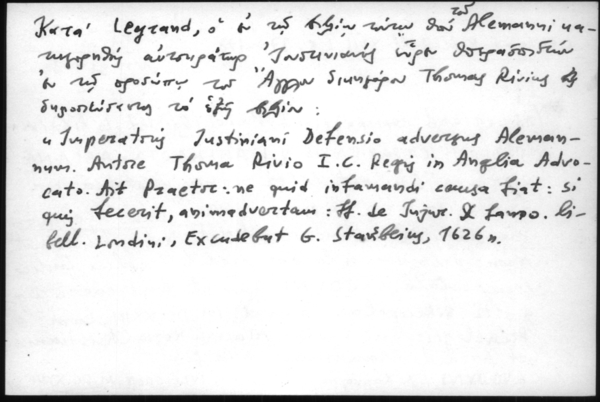 Κατά Legrand, ὁ ἐν τῷ βιβλίῳ τούτῳ ὑπό τοῦ Alemanni κα-
τηγορηθείς αὐτοκράτωρ Ἰουστινιανός εὗρεν ὑπερασπιστήν
ἐν τῷ προσώπῳ τοῦ Ἄγγλου δικηγόρου Thomas Rivius
δημοσιεύσαντος τό ἑξῆς βιβλίον :
"Imperatoris Justiniani Defensio adversus Aleman-
num. Autore Thoma Rivio I.C. Regis in Anglia Advo-
cato. Ait Praetor: ne quid infamandi causa fiat: si
quis fecerit, animadvertam: ff. de Injur. & famo. li-
bell. Londini, Excudebat G. Stansbeius, 1626".